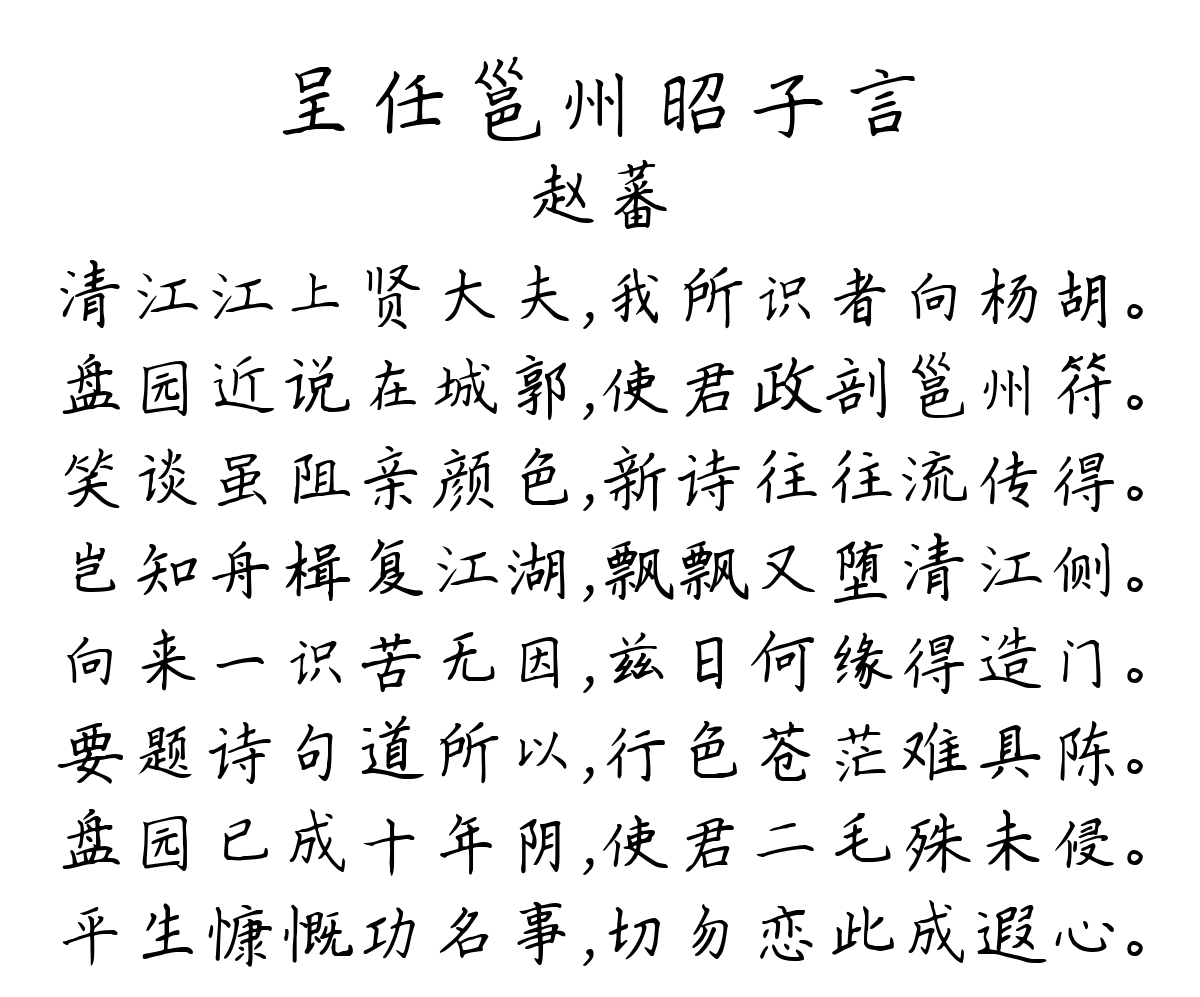 呈任邕州昭子言
赵蕃
清江江上贤大夫,我所识者向杨胡。
盘园近说在城郭,使君政剖邕州符。
笑谈虽阻亲颜色,新诗往往流传得。
岂知舟楫复江湖,飘飘又堕清江侧。
向来一识苦无因,兹日何缘得造门。
要题诗句道所以,行色苍茫难具陈。
盘园已成十年阴,使君二毛殊未侵。
平生慷慨功名事,切勿恋此成遐心。